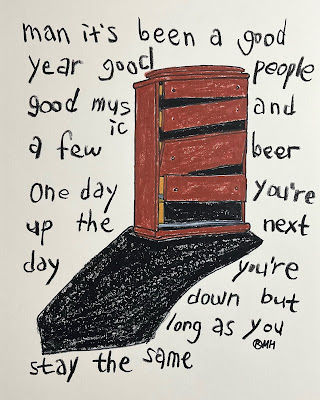 man it's been a good
year good people
good mus and
ic
a few beer
One day you're
up the next
day you're
down but
long as you
®MH
stay the same